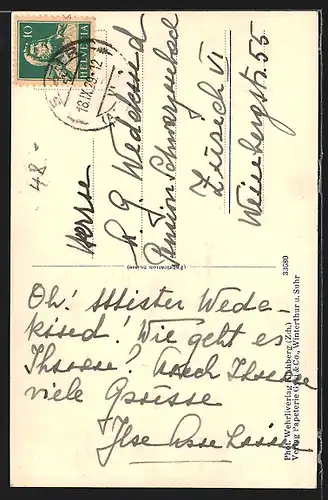 10
HELVETIA
18.IX.29.-12
48.-
Herrn
G. Wedekind
Pension Schwarzenbach
Zürich VI
Weinbergstr. 55
33680
Oh! Mister Wede-
kind! Wie geht es
Ihnen? Auch Ihnen
viele Grüsse
Ilse
Phot. Wehrliverlag Kilchberg (Zch.)
Verlag Papeterie & Co., Winterthur u. Suhr